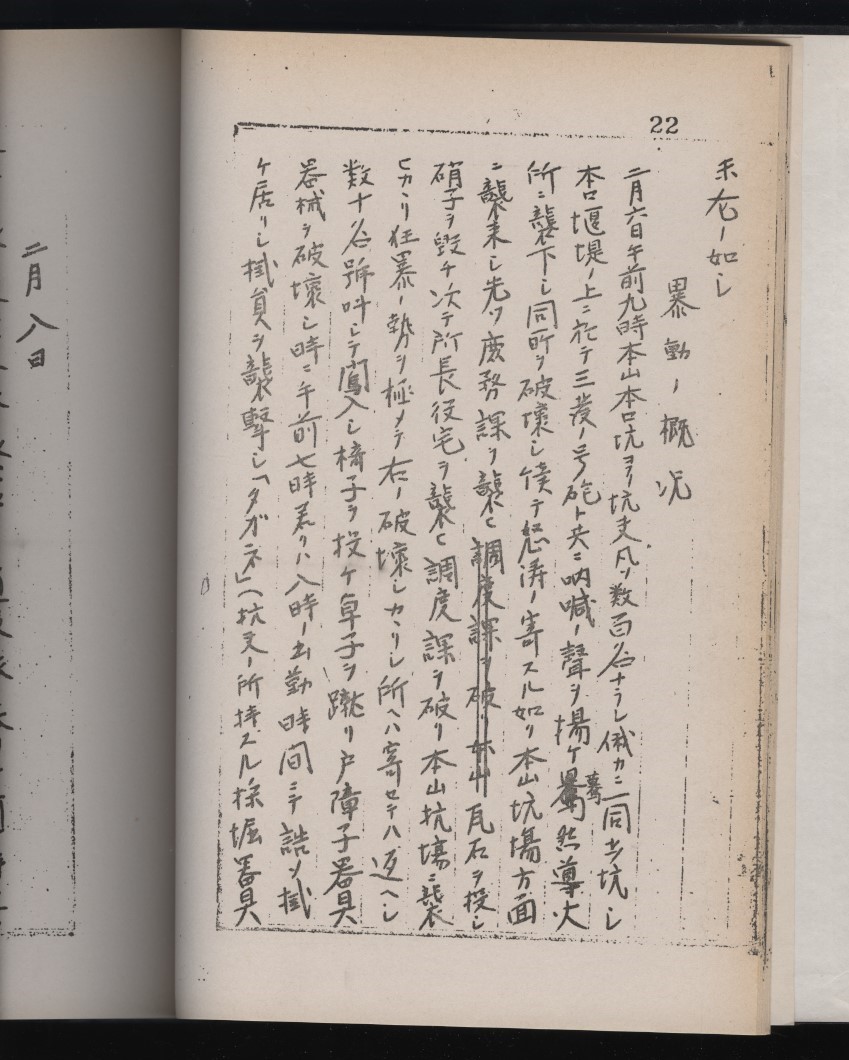 22
禾右ノ如シ
暴動ノ概況
二月六日午前九時本山本口坑ヨリ坑夫凡ソ数百名ナラン俄カニ一同出坑シ
本口堰堤ノ上ニ於テ三発ノ号砲ト共ニ吶喊ノ聲ヲ揚ケ驀然導火
所ニ襲下シ同所ヲ破壊シ儘テ怒涛ノ寄スル如ク本山坑場方面
ニ襲来シ先ツ庶務課ヲ襲ヒ調度課ヲ破リ本山瓦石ヲ投シ
硝子ヲ毀チ次テ所長役宅ヲ襲ヒ調度課ヲ破リ本山坑場ニ襲
ヒカヽリ狂暴ノ勢ヲ極メテ右ノ破壊シカヽリシ所ヘハ寄セテハ返ヘシ
数十名號叫シテ闖入シ椅子ヲ投ケ卓子ヲ蹴リ戸障子器具
器械ヲ破壊シ時ニ午前七時若クハ八時ノ出勤時間ニテ詰メ掛
ケ居リシ掛員ヲ襲撃シ「タガネ」(坑夫ノ所持スル採堀器具
二月八日